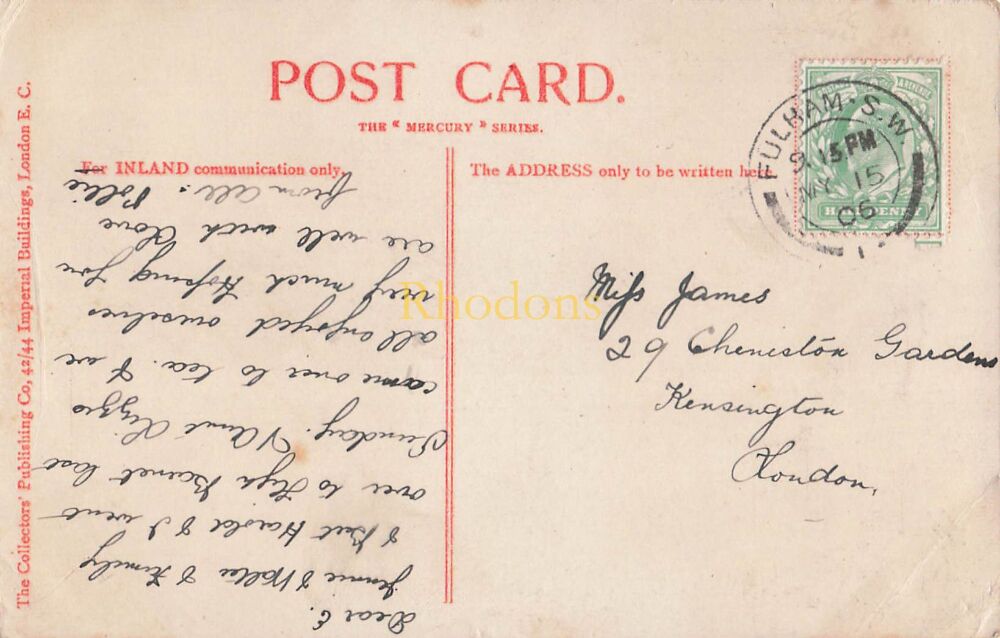 POST CARD.
THE "MERCURY" SERIES.
For INLAND communication only.
The ADDRESS only to be written here.
The Collectors' Publishing Co, 42/44 Imperial Buildings, London E. C.
FULHAM. S.W.
9.15 PM
MY 15
06
1
HALFPENNY
Miss James
29 Cheniston Gardens
Kensington
London.
Dear E.
Jennie & Walter & Family
& Bert Harold & I went
over to High Barnet last
Sunday. Aunt Lizzie
came over to tea & we
all enjoyed ourselves
very much Hoping you
are well with Love
from all. Pollie
Rhodons